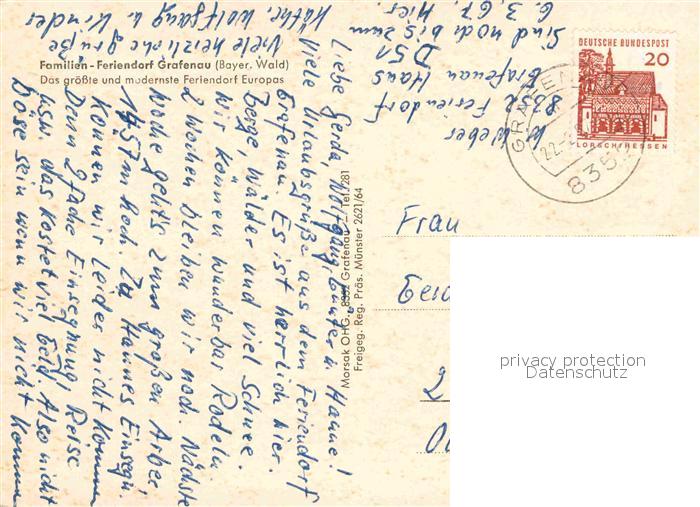 Familien-Feriendorf Grafenau (Bayer. Wald)
Das größte und modernste Feriendorf Europas
Liebe Gerda, Wolfgang, Günter u. Hanne!
Viele Urlaubsgrüße aus dem Feriendorf
Grafenau. Es ist herrlich hier.
Berge Wälder und viel Schnee.
Wir können wunderbar Rodeln.
2 Wochen bleiben wir noch. Nächste
Woche gehts zum großen Arber,
1457 m hoch. Zu Hannes Einsegn.
können wir leider nicht kommen
Denn 2 fache Einsegnung Reise
usw. das kostet viel Geld. Also nicht
Böse sein wenn wir nicht kommen
Viele herzliche Grüße
Käthe, Wolfgang u. Kinder
Sind noch bis zum
6. 3. 67. hier.
Weber
8352 Feriendorf
Grafenau Haus
D51
Morsak OHG., 8352 Grafenau – Tel. 281
Freigeg. Reg. Präs. Münster 2621/64
DEUTSCHE BUNDESPOST
20
LORSCH/HESSEN
GRAFENAU
22.-2
8352
Frau
privacy protection
Datenschutz